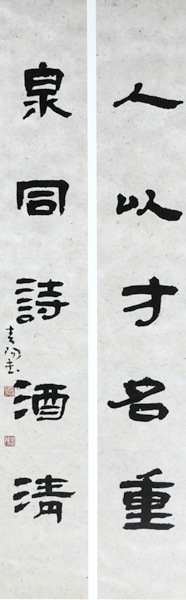 人以才名重
泉同詩酒清